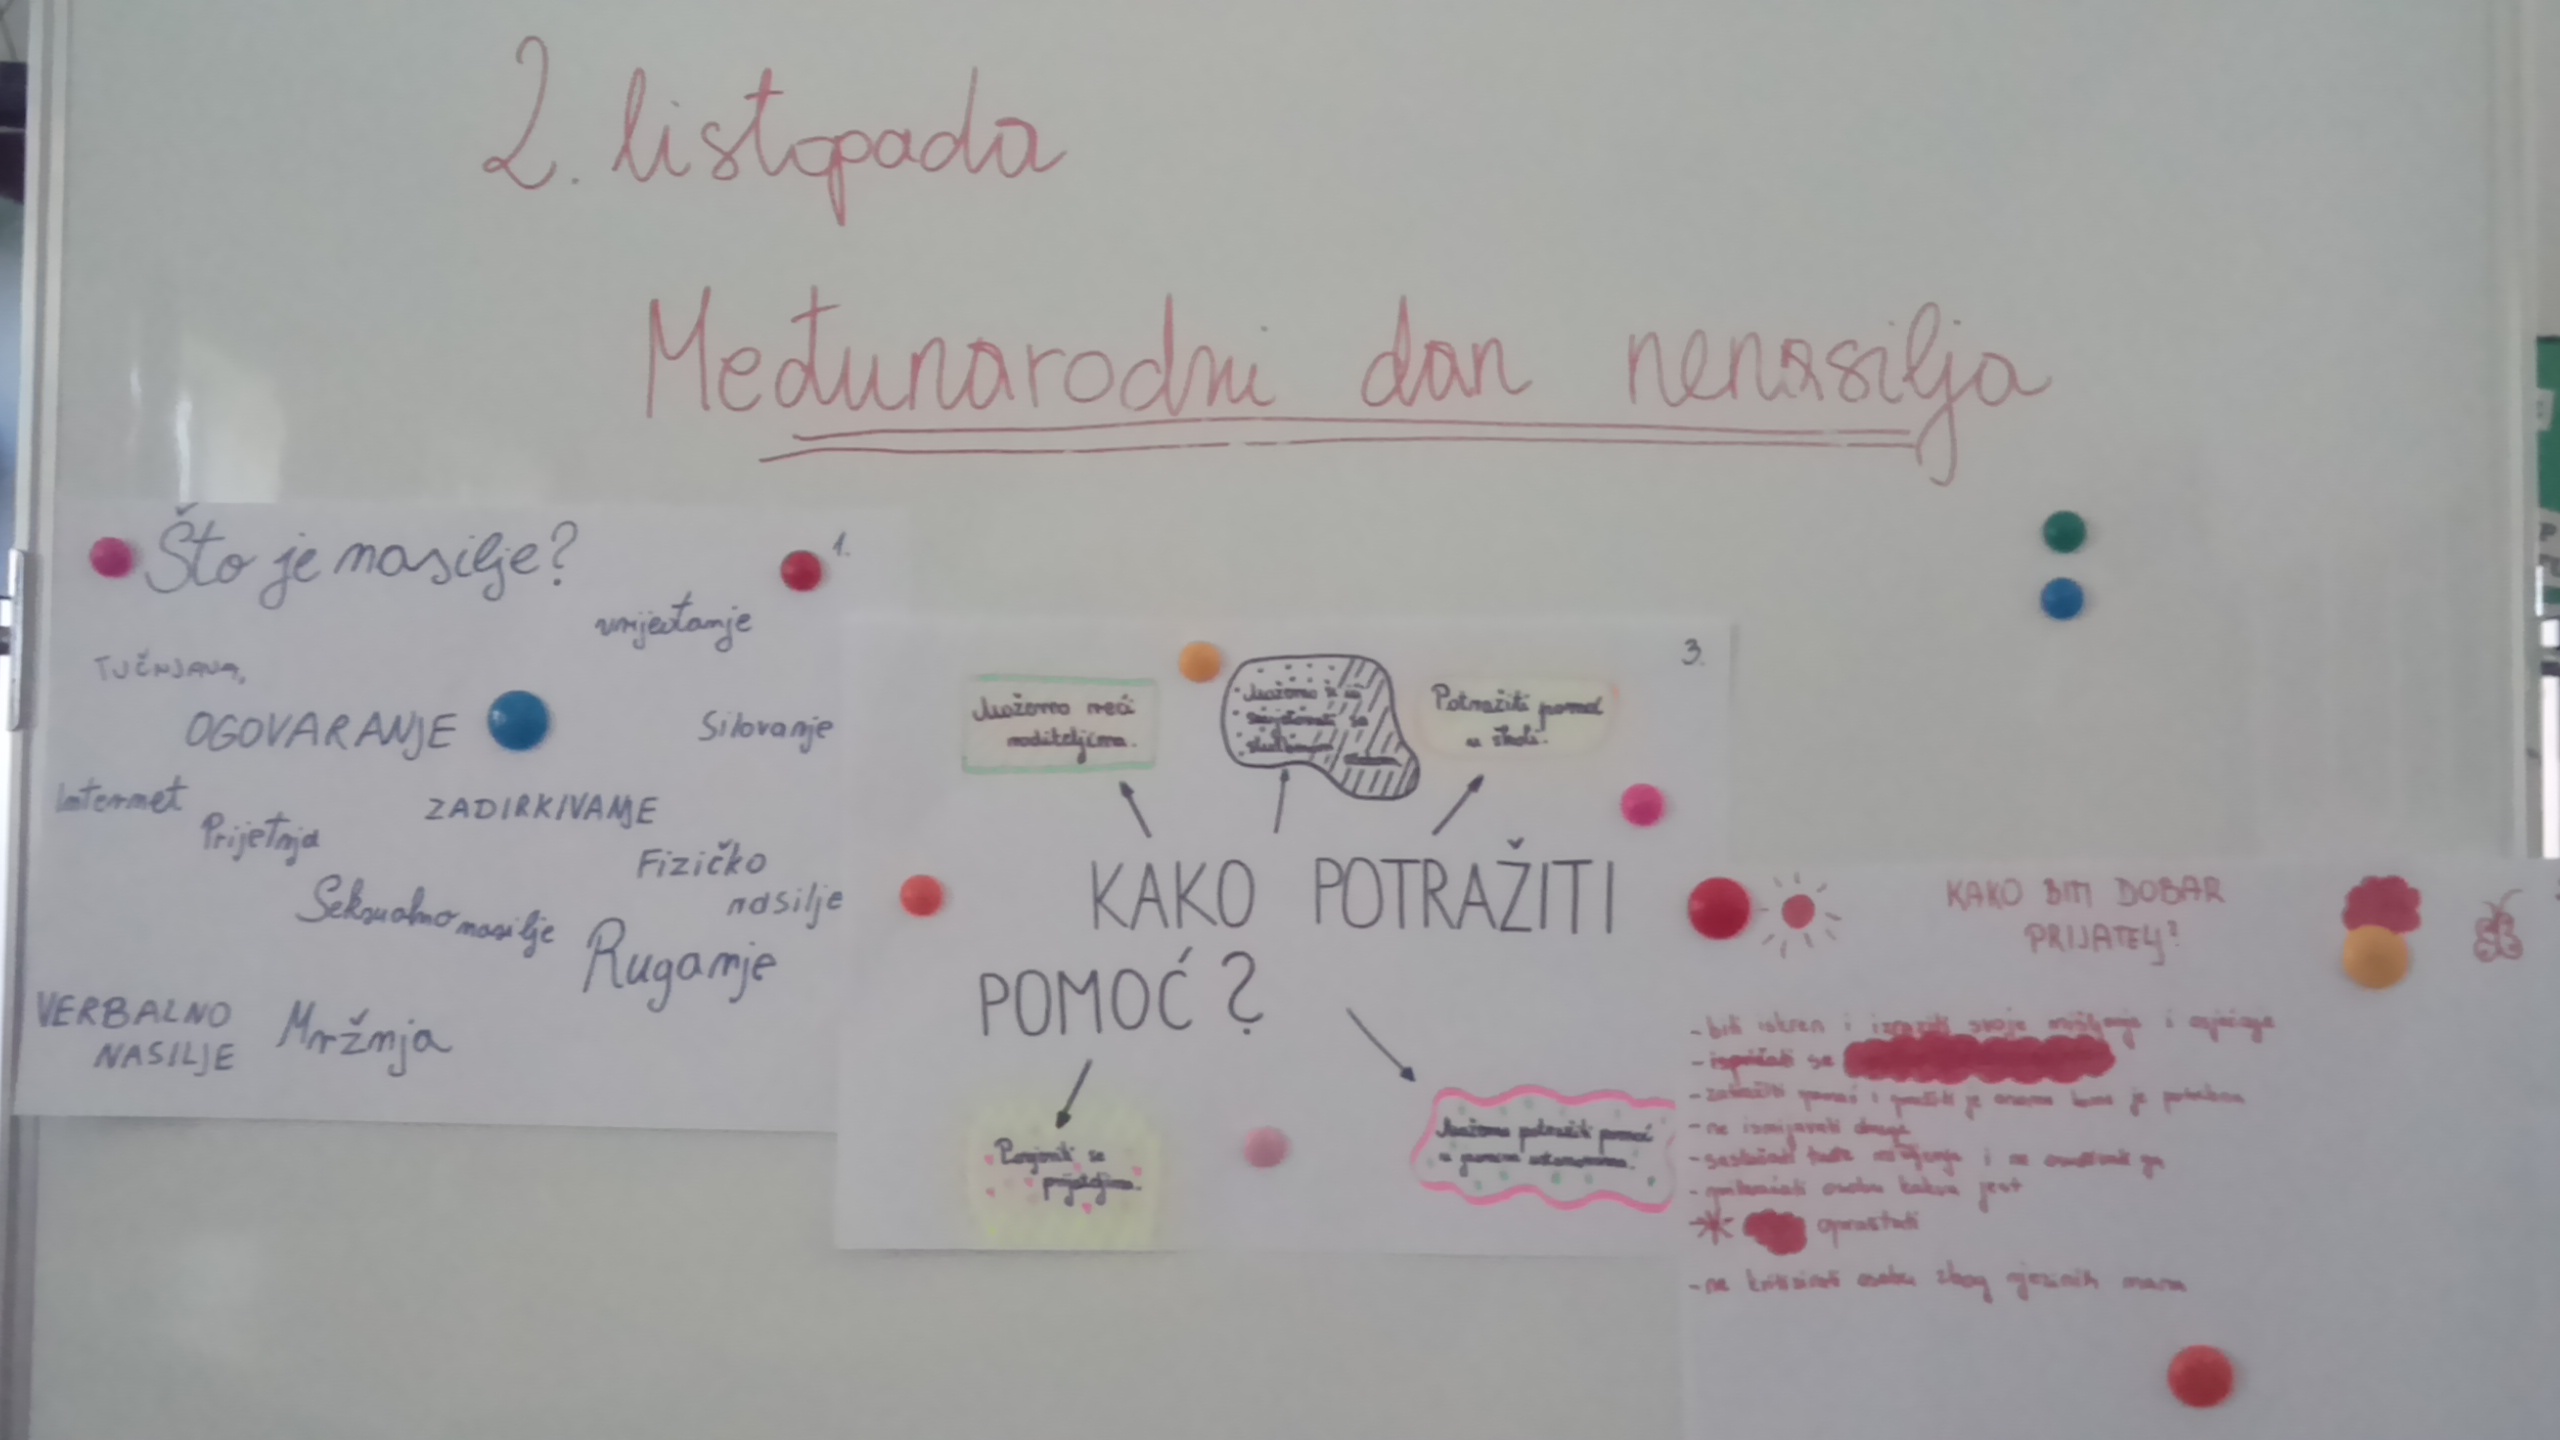 2. listopada
Međunarodni dan nenasilja
Što je nasilje?
1.
vrijeđanje
TUČNJAVA,
OGOVARANJE
Silovanje
Internet
Prijetnja
ZADIRKIVANJE
Fizičko
nasilje
Seksualno nasilje
Ruganje
VERBALNO
NASILJE
Mržnja
3.
Možemo reći
roditeljima.
Možemo
Potražiti pomoć
u školi.
KAKO POTRAŽITI
POMOĆ?
Povjeriti se
prijateljima.
Možemo potražiti pomoć
u
KAKO BITI DOBAR
PRIJATELJ?
- biti iskren i izraziti svoje mišljenje i osjećaje
- ispričati se
- zatražiti pomoć i pružiti je onome kome je potrebna
- ne ismijavati druge
- saslušati tuđe mišljenje i ne osuđivati ga
- prihvaćati osobu kakva jest
opraštati
- ne kritizirati osobu zbog njezinih mana